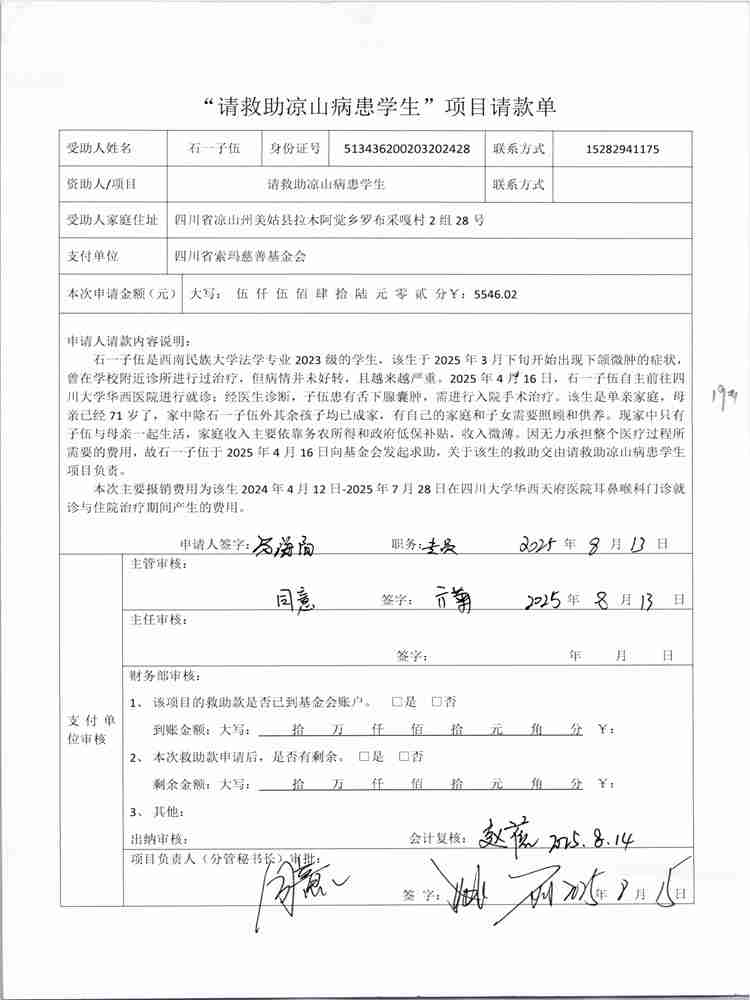 “请救助凉山病患学生”项目请款单
受助人姓名 石一子伍 身份证号 513436200203202428 联系方式 15282941175
资助人/项目 请救助凉山病患学生 联系方式
受助人家庭住址 四川省凉山州美姑县拉木阿觉乡罗布采嘎村 2 组 28 号
支付单位 四川省索玛慈善基金会
本次申请金额（元） 大写： 伍 仟 伍 佰 肆 拾 陆 元 零 贰 分￥：5546.02
申请人请款内容说明：
石一子伍是西南民族大学法学专业 2023 级的学生，该生于 2025 年 3 月下旬开始出现下颌微肿的症状，
曾在学校附近诊所进行过治疗，但病情并未好转，且越来越严重。2025 年 4 月 16 日，石一子伍自主前往四
川大学华西医院进行就诊；经医生诊断，子伍患有舌下腺囊肿，需进行入院手术治疗。该生是单亲家庭，母
亲已经 71 岁了，家中除石一子伍外其余孩子均已成家，有自己的家庭和子女需要照顾和供养。现家中只有
子伍与母亲一起生活，家庭收入主要依靠务农所得和政府低保补贴，收入微薄。因无力承担整个医疗过程所
需要的费用，故石一子伍于 2025 年 4 月 16 日向基金会发起求助，关于该生的救助交由请救助凉山病患学生
项目负责。
本次主要报销费用为该生 2024 年 4 月 12 日-2025 年 7 月 28 日在四川大学华西天府医院耳鼻喉科门诊就
诊与住院治疗期间产生的费用。
申请人签字： 职务： 2025 年 8 月 13 日
支付单位审核
主管审核：
同意 签字： 2025 年 8 月 13 日
主任审核：
签字： 年 月 日
财务部审核：
1、 该项目的救助款是否已到基金会账户。 □是 □否
到账金额：大写： 拾 万 仟 佰 拾 元 角 分 ￥：
2、 本次救助款申请后，是否有剩余。 □是 □否
剩余金额：大写： 拾 万 仟 佰 拾 元 角 分 ￥：
3、 其他：
出纳审核： 会计复核： 2025.8.14
项目负责人（分管秘书长）审批：
同意 签 字： 2025 年 8 月 15 日